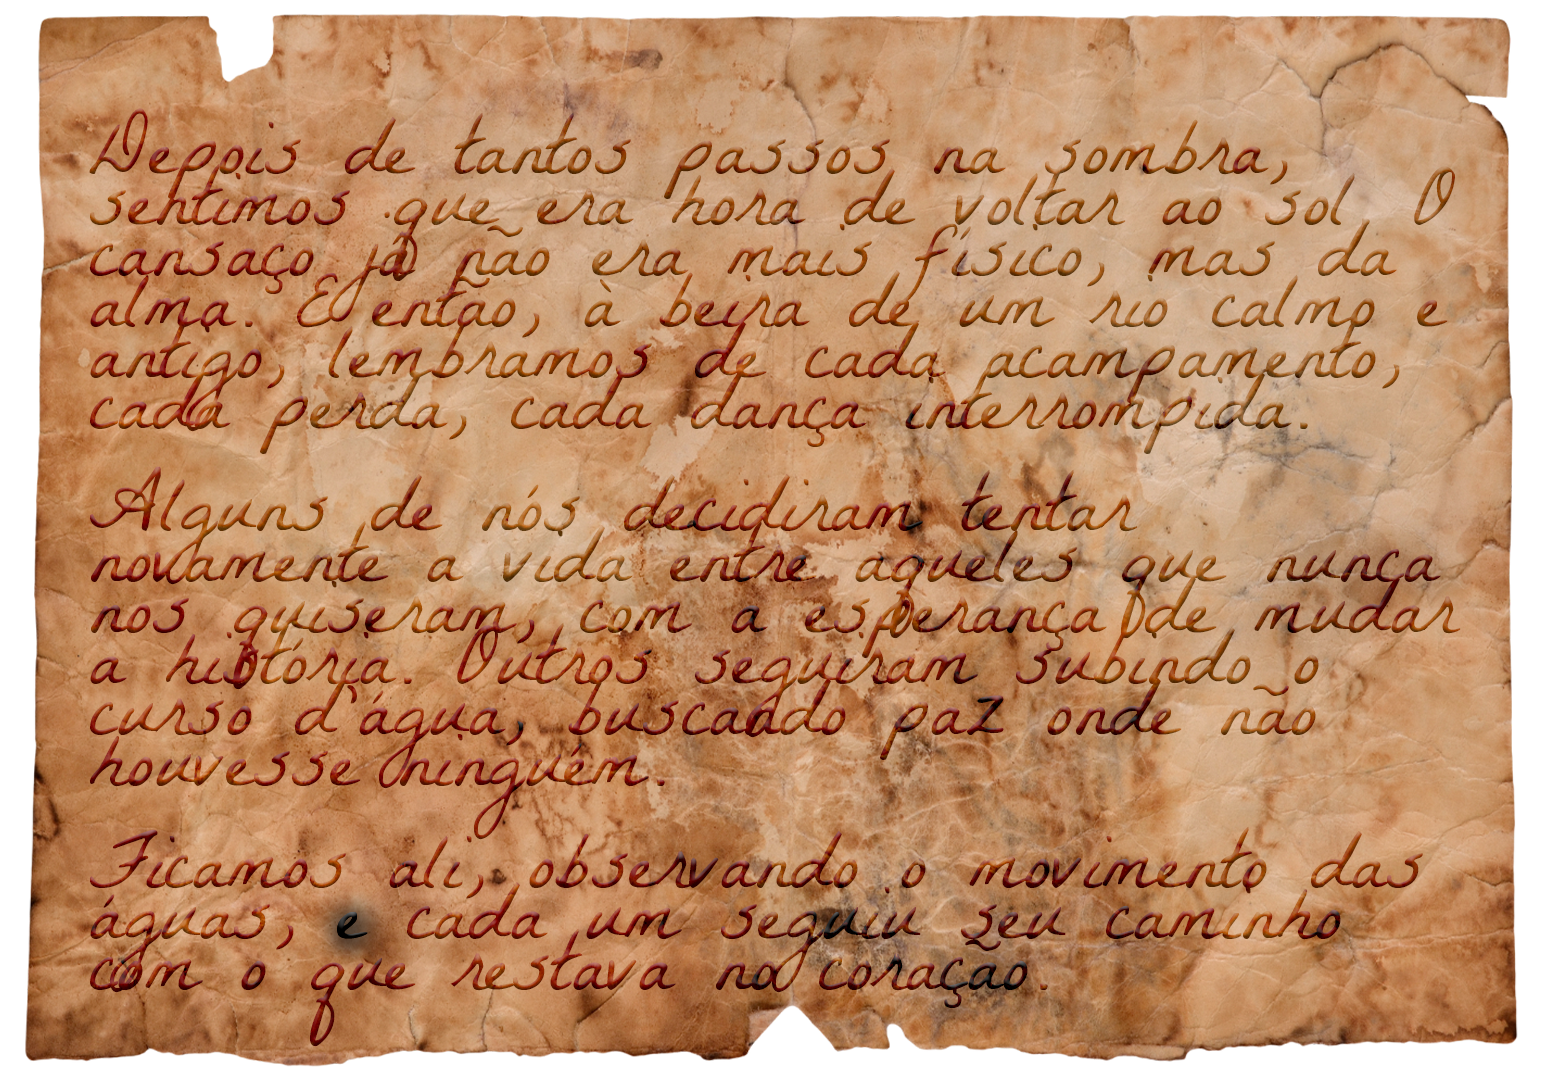 Depois de tantos passos na sombra,
sentimos que era hora de voltar ao sol. O
cansaço já não era mais físico, mas da
alma. E então, à beira de um rio calmo e
antigo, lembramos de cada acampamento,
cada perda, cada dança interrompida.
Alguns de nós decidiram tentar
novamente a vida entre aqueles que nunca
nos quiseram, com a esperança de mudar
a história. Outros seguiram subindo o
curso d'água, buscando paz onde não
houvesse ninguém.
Ficamos ali, observando o movimento das
águas, e cada um seguiu seu caminho
com o que restava no coração.